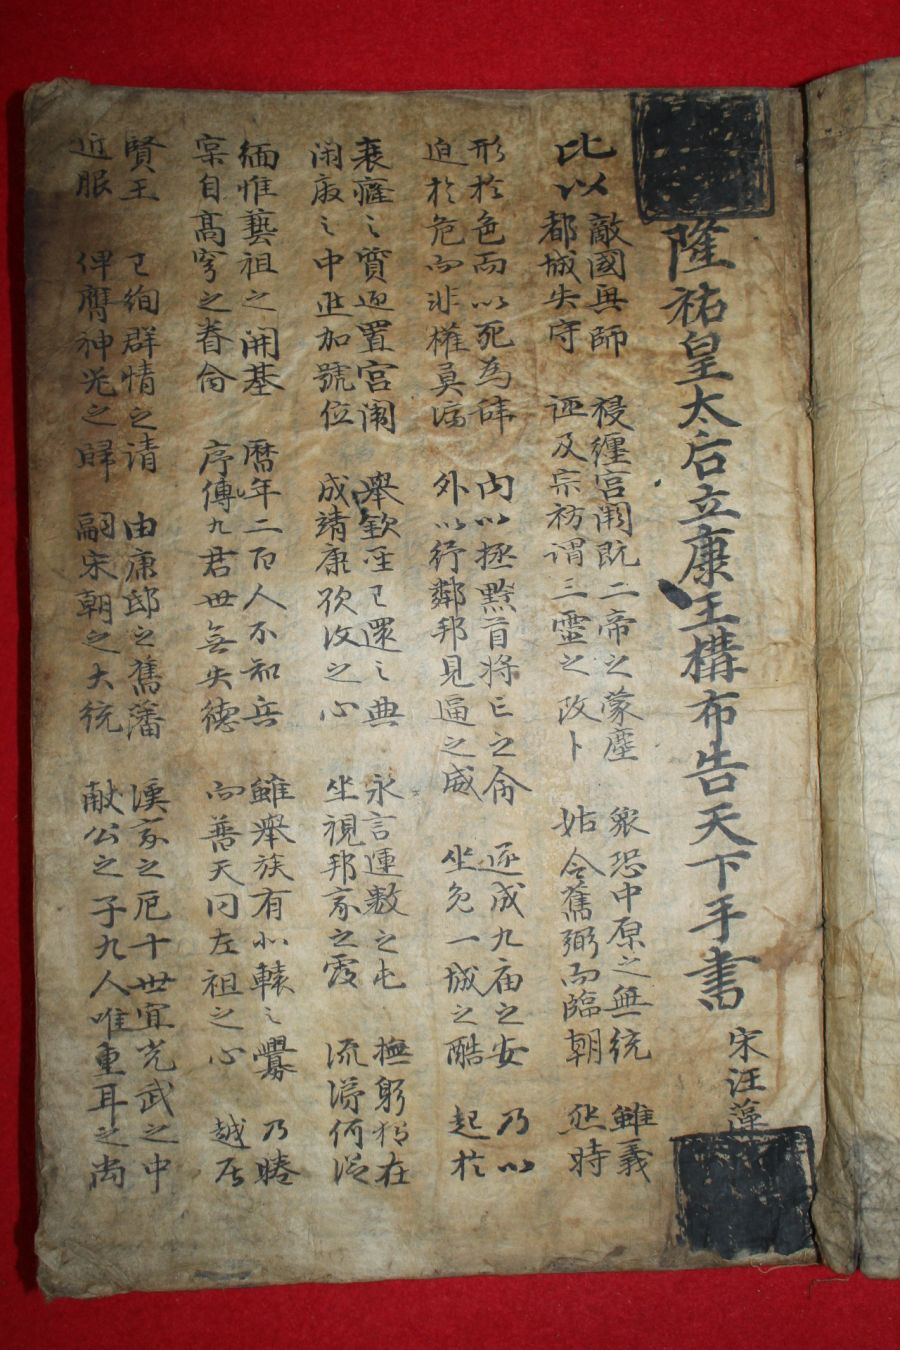 隆祐皇太后立康王構布告天下手書 宋汪藻
比以
敵國興師 祲纏宮闕既二帝之蒙塵 衆恐中原之無統 雖義
都城失守 誣及宗祊謂三靈之改卜 姑令舊弼而臨朝 然時
形於色而以死為辞 內以拯黔首將亡之命 遂成九庙之安 乃以
迫於危而非權莫济 外以行鄰邦見逼之威 坐免一城之酷 起於
衰癃之質迎置宮闈 舉欽聖已還之典 永言運數之屯 撫躬猶在
闲廢之中進加號位 成靖康欲復之心 坐視邦家之覆 流涕何從
緬惟藝祖之開基 曆年二百人不知兵 雖舉族有北轅之釁 乃睠
寔自高穹之眷命 序傳九君世無失德 而普天同左袒之心 越居
賢王 已徇群情之请 由康邸之舊藩 漢家之厄十世宜光武之中
近服 俾膺神器之歸 嗣宋朝之大統 献公之子九人唯重耳之尚